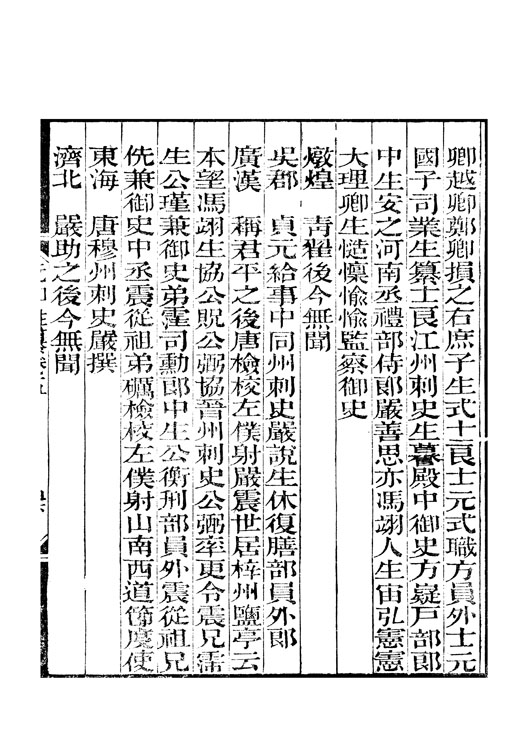 卿越卿鄭卿損之右庶子生式士良士元式職方員外士元
國子司業生纂士良江州刺史生謩殿中御史方嶷戶部郎
中生安之河南丞禮部侍郎嚴善思亦馮翊人生宙弘憲憲
大理卿生愻懍愉愉監察御史
燉煌 青翟後今無聞
吳郡 貞元給事中同州刺史嚴說生休復膳部員外郎
廣漢 稱君平之後唐檢校左僕射嚴震世居梓州鹽亭云
本望馮翊生協公貺公弼協晉州刺史公弼率更令震兄霈
生公瑾兼御史弟霆司勳郎中生公衡刑部員外震從祖兄
侁兼御史中丞震從祖弟礪檢校左僕射山南西道節度使
東海 唐穆州刺史嚴撰
濟北 嚴助之後今無聞
元和姓纂卷五